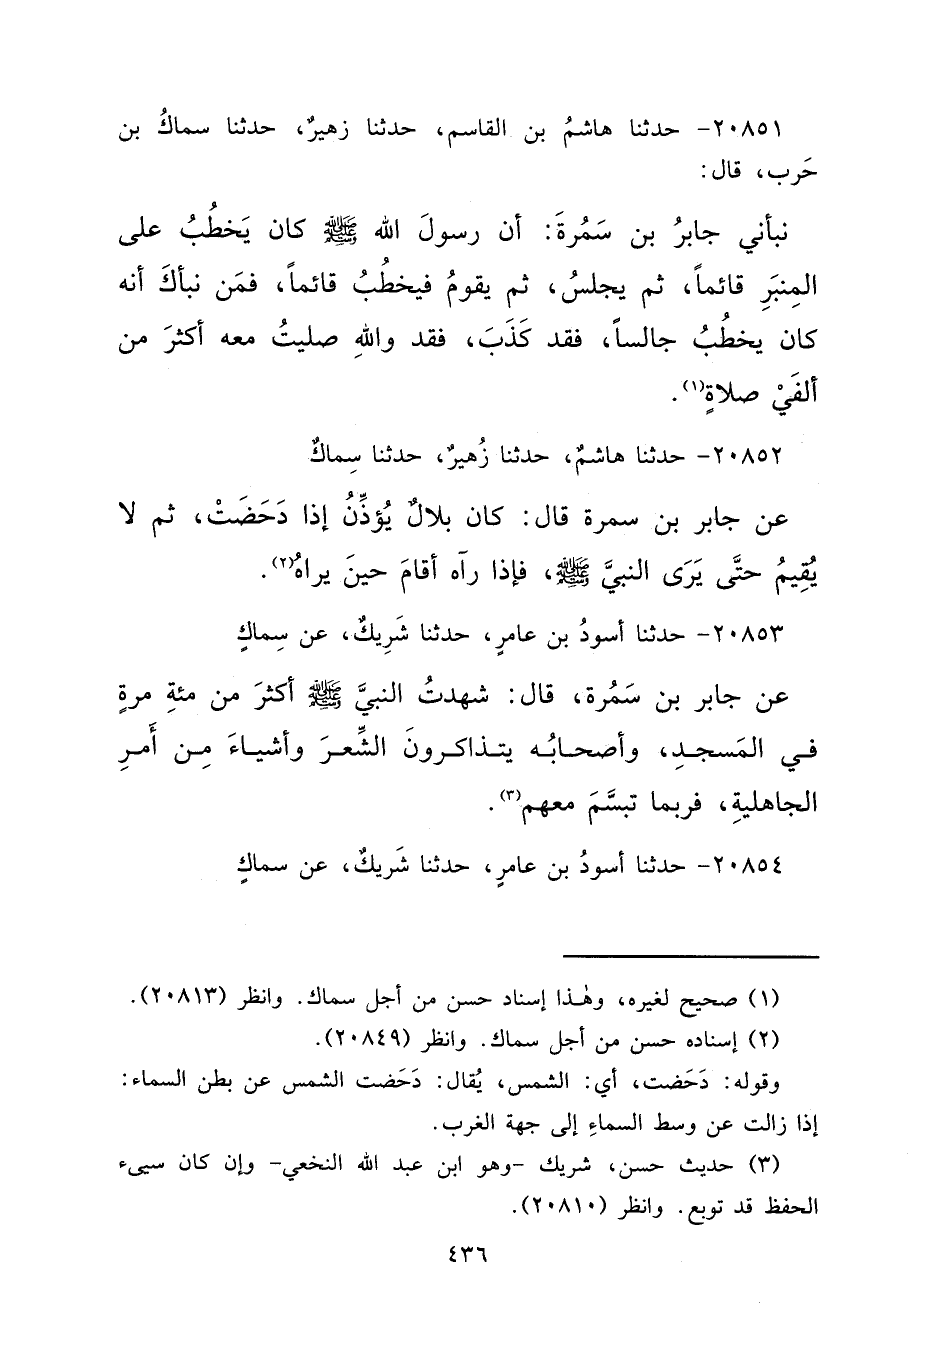 ٢٠٨٥١- حدثنا هاشمُ بن القاسم، حدثنا زهيرٌ، حدثنا سماكُ بن
حَرب، قال:
نبأني جابرُ بن سَمُرةَ: أن رسولَ الله ﷺ كان يَخطُبُ على
المِنبَرِ قائماً، ثم يجلسُ، ثم يقومُ فيخطُبُ قائماً، فمَن نبأكَ أنه
كان يخطُبُ جالساً، فقد كَذَبَ، فقد واللهِ صليتُ معه أكثرَ من
ألفَيْ صلاةٍ(١).
٢٠٨٥٢- حدثنا هاشمٌ، حدثنا زُهيرٌ، حدثنا سِماكٌ
عن جابر بن سمرة قال: كان بلالٌ يُؤذِّنُ إذا دَحَضَتْ، ثم لا
يُقِيمُ حتَّى يَرَى النبيَّ ﷺ، فإذا رآه أقامَ حينَ يراهُ(٢).
٢٠٨٥٣- حدثنا أسودُ بن عامرٍ، حدثنا شَرِيكٌ، عن سِماكٍ
عن جابر بن سَمُرة، قال: شهدتُ النبيَّ ﷺ أكثرَ من مئةِ مرةٍ
في المَسجدِ، وأصحابُه يتذاكرونَ الشِّعرَ وأشياءَ مِن أَمرِ
الجاهليةِ، فربما تبسَّمَ معهم(٣).
٢٠٨٥٤- حدثنا أسودُ بن عامرٍ، حدثنا شَريكٌ، عن سماكٍ
(١) صحيح لغيره، وهٰذا إسناد حسن من أجل سماك. وانظر (٢٠٨١٣).
(٢) إسناده حسن من أجل سماك. وانظر (٢٠٨٤٩).
وقوله: دَحَضت، أي: الشمس، يُقال: دَحَضت الشمس عن بطن السماء:
إذا زالت عن وسط السماءِ إلى جهة الغرب.
(٣) حديث حسن، شريك -وهو ابن عبد الله النخعي- وإن كان سيىء
الحفظ قد توبع. وانظر (٢٠٨١٠).
٤٣٦